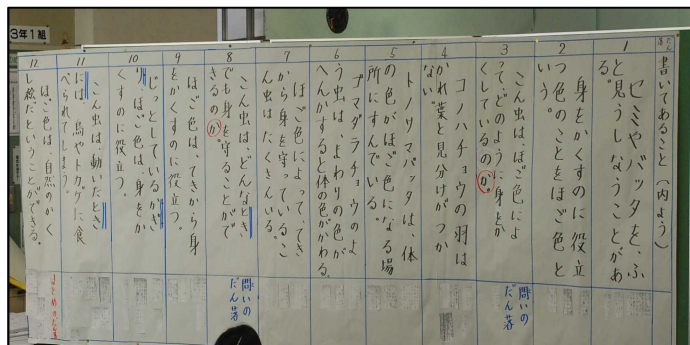 3年1組
だん落
書いてあること(内よう)
1
セミやバッタを、ふ
と見うしなうことがあ
る。
2
身をかくすのに役立
つ色のことをほご色と
いう。
3
こん虫は、ほご色によ
って、どのように身をか
くしているのか。
問いの
だん落
4
コノハチョウの羽は
かれ葉と見分けがつか
ない。
5
トノサマバッタは、体
の色がほご色になる場
所にすんでいる。
6
ゴマダラチョウのよ
う虫は、まわりの色が
へんかすると体の色がかわる。
7
ほご色によって、てき
から身を守っているこ
ん虫はたくさんいる。
8
こん虫は、どんなとき
でも身を守ることがで
きるのか。
問いの
だん落
9
ほご色は、てきから身
をかくすのに役立つ。
10
じっとしているかぎ
り、ほご色は、身をか
くすのに役立つ。
11
こん虫は、動いたとき
には、鳥やトカゲに食
べられてしまう。
12
ほご色は、自然のかく
し絵だということができる。